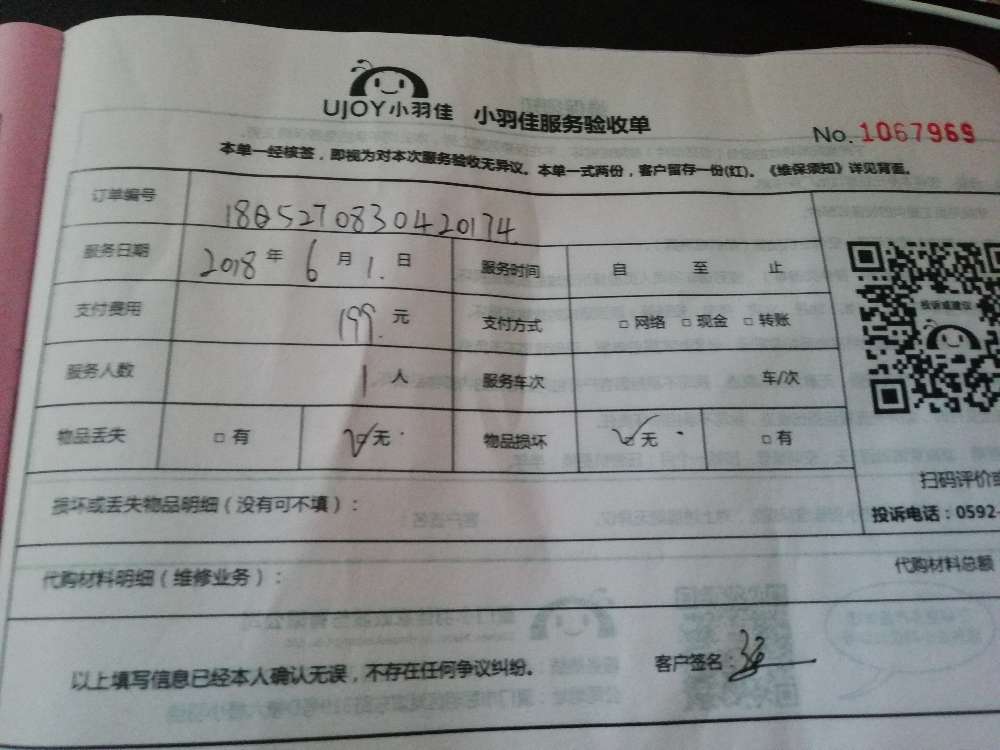 UJOY小羽佳 小羽佳服务验收单
No. 1067969
本单一经核签，即视为对本次服务验收无异议。本单一式两份，客户留存一份(红)。《维保须知》详见背面。
订单编号 1805270830420174
服务日期 2018 年 6 月 1. 日 服务时间 自 至 止
支付费用 199. 元 支付方式 □ 网络 □ 现金 □ 转账
投诉或建议
服务人数 1 人 服务车次 车/次
物品丢失 □ 有 ☑无 物品损坏 ☑无 □ 有
扫码评价或
损坏或丢失物品明细（没有可不填）：
投诉电话：0592-
代购材料明细（维修业务）： 代购材料总额
以上填写信息已经本人确认无误，不存在任何争议纠纷。 客户签名：